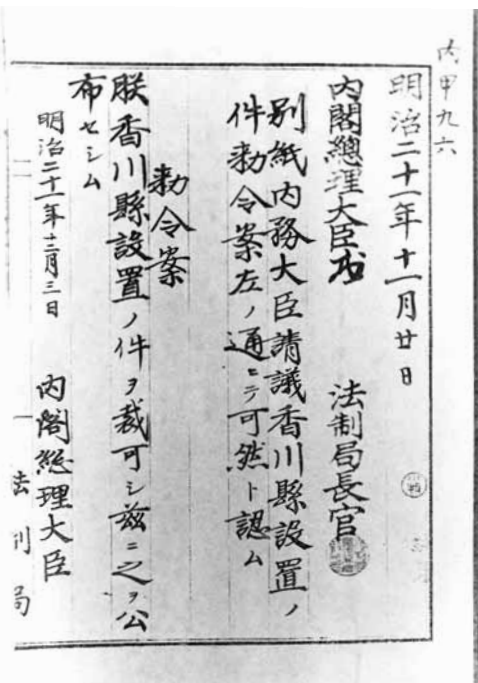 内甲九六
明治二十一年十一月廿日
内閣總理大臣
法制局長官
別紙内務大臣請議香川縣設置ノ
件勅令案左ノ通ニテ可然ト認ム
勅令案
朕香川縣設置ノ件ヲ裁可シ茲ニ之ヲ公
布セシム
明治二十一年十二月三日
内閣総理大臣
法制局